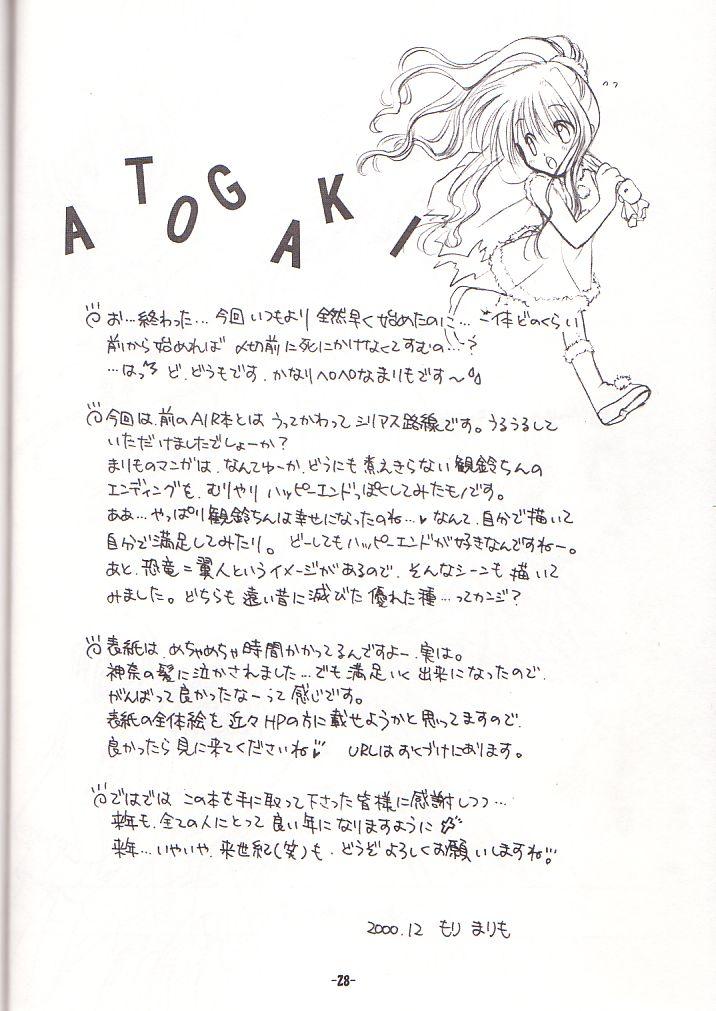 ATOGAKI
お…終わった…今回いつもより全然早く始めたのに…一体どのくらい
前から始めれば〆切前に死にかけなくてすむの…?
…はっ ど、どうもです、かなりヘロヘロなまりもです〜
今回は、前のAIR本とはうってかわってシリアス路線です。うるうるして
いただけましたでしょーか?
まりものマンガは、なんてゆーか、どうにも煮えきらない観鈴ちんの
エンディングを、むりやりハッピーエンドっぽくしてみたものです。
ああ…やっぱり観鈴ちんは幸せになったのね…♥なんて、自分で描いて
自分で満足してみたり。どーしてもハッピーエンドが好きなんですねー。
あと、恐竜=翼人というイメージがあるので、そんなシーンも描いて
みました。どちらも遠い昔に滅びた優れた種…ってカンジ?
表紙は、めちゃめちゃ時間かかってるんですよー、実は。
神奈の髪に泣かされました…でも満足いく出来になったので、
がんばって良かったなーって感じです。
表紙の全体絵を近々HPの方に載せようかと思ってますので、
良かったら見に来てくださいね♥ URLはおくづけにあります。
ではでは この本を手に取って下さった皆様に感謝しつつ…
来年も、全ての人にとって良い年になりますように
来年…いやいや、来世紀(笑)も、どうぞよろしくお願いしますね!
2000.12 もり まりも
-28-